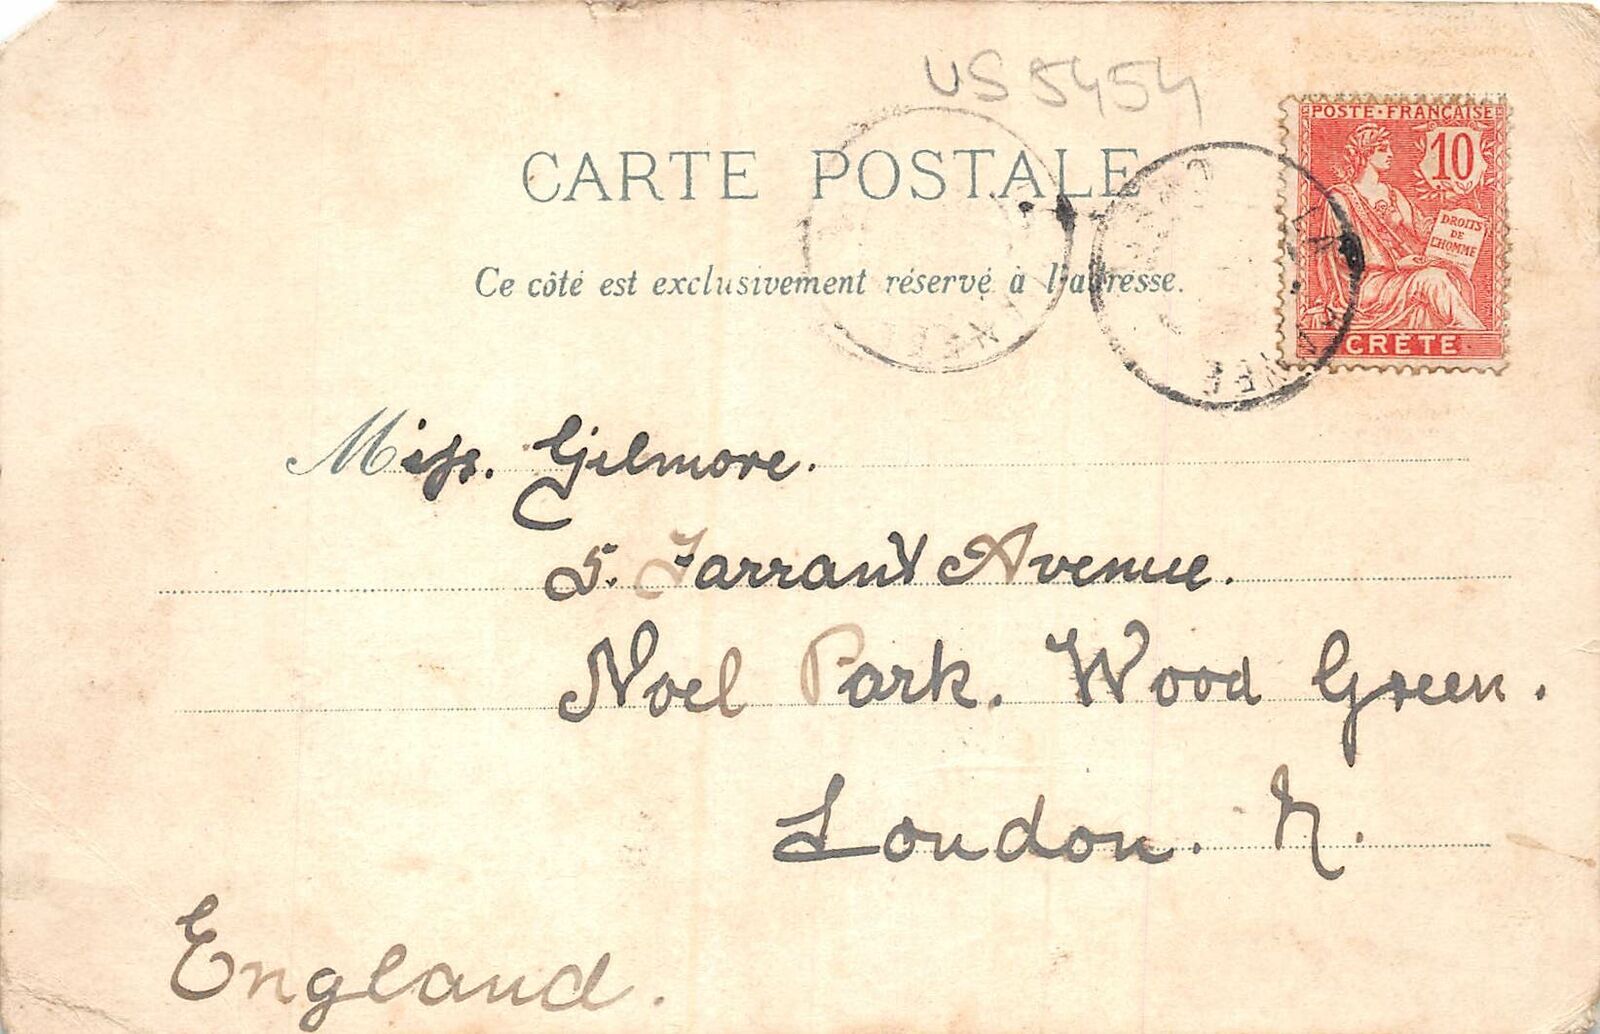 US 5454
POSTE·FRANÇAISE
10
DROITS
DE
L'HOMME
CRÈTE
LA CANÉE
CARTE POSTALE
Ce côté est exclusivement réservé à l'adresse.
Miss. Gilmore.
5. Farrant Avenue.
Noel Park. Wood Green.
London. N.
England.